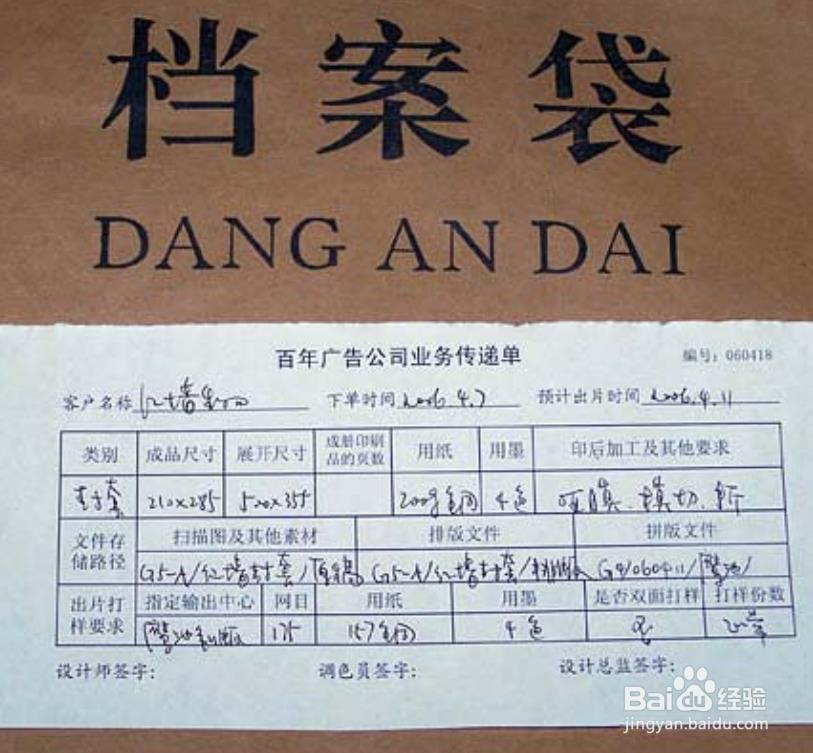 档案袋
DANG AN DAI
百年广告公司业务传递单 编号：060418
客户名称 红墙 下单时间 2006.4.7 预计出片时间 2006.4.11
类别 成品尺寸 展开尺寸 成册印刷品的页数 用纸 用墨 印后加工及其他要求
封套 210×285 520×355 200g铜 4色 哑膜、模切、折
文件存储路径 扫描图及其他素材 排版文件 拼版文件
G5-A/红墙封套/原稿 G5-A/红墙封套/ G4/060411/
出片打样要求 指定输出中心 网目 用纸 用墨 是否双面打样 打样份数
175 157铜 4色 否
设计师签字： 调色员签字： 设计总监签字：
Baidu经验
jingyan.baidu.com